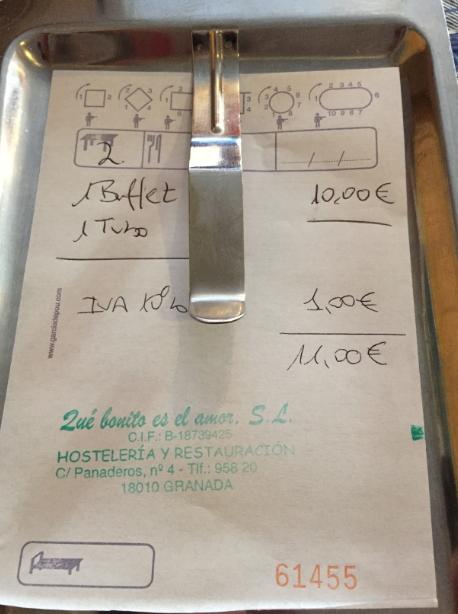 2
1 Buffet 10,00€
1 Tubo
IVA 10% 1,00€
11,00€
www.garciadepou.com
Qué bonito es el amor, S.L.
C.I.F.: B-18739425
HOSTELERÍA Y RESTAURACIÓN
C/ Panaderos, nº 4 - Tlf.: 958 20
18010 GRANADA
61455